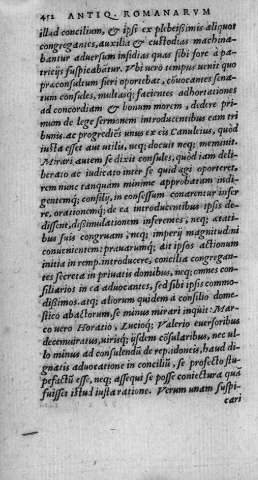 452 ANTIQ. ROMANARVM
illad concilium, & ipsi ex plebeißimis aliquot
congregantes, auxilia & custodias machina-
bantur aduersum insidias quas sibi fore à pa-
tricijs suspicabatur. Vbi uerò tempus uenit quo
præconsultum fieri oportebat, cōuocantes sena-
tum consules, multasq; facientes adhortationes
ad concordiam & bonum morem, dedere pri-
mum de lege sermonem introducentibus eam tri
bunis. ac progrediēs unus ex eis Canuleius, quòd
iusta esset aut utilis, neq; docuit neq; meminit.
Mirari autem se dixit consules, quòd iam deli-
berato ac iudicato inter se quid agi oporteret,
rem nunc tanquam minime approbatam indi-
gentemq; consilij, in consessum conarentur infer
re, orationemq; de ea introducentibus ipsis de-
dissent, dißimulationem inferentes, neq; ætati-
bus suis congruam, neq; imperij magnitudini
conuenientem: prauarumq; ait ipsos actionum
initia in remp. introducere, concilia congregan-
tes secreta in priuatis domibus, neq; omnes con-
siliarios in ea aduocantes, sed sibi ipsis commo-
dißimos. atq; aliorum quidem à consilio dome-
stico abactorum, se minus mirari inquit: Mar-
co uero Horatio, Lucioq; Valerio euersoribus
decemuiratus, uirisq; ijsdem cōsularibus, nec ul-
lo minus ad consulendū de rep. idoneis, haud di-
gnatis aduocatione in conciliū, se profecto stu-
pefactū esse, neq; assequi se posse coniectura quā
fuisset istud iusta ratione. Verum unam suspi
cari